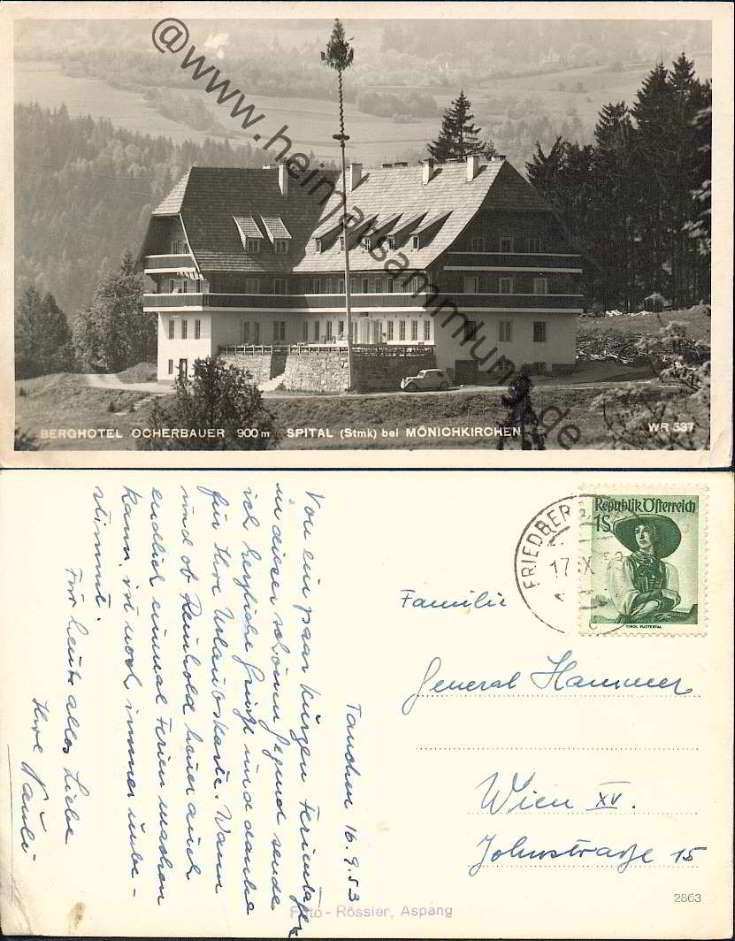 @www.heimatsammlung.de
BERGHOTEL OCHERBAUER 900m SPITAL (Stmk) bei MÖNICHKIRCHEN
WR 337
Tauchen 16.9.53
Von ein paar kurzen Ferientagen
in dieser schönen Gegend sende
ich herzliche Grüße und danke
für Ihre Urlaubskarte. Wann
und ob Reinhold heuer auch
endlich einmal Ferien machen
kann, ist noch immer unbe-
stimmt.
Für heute alles Liebe
Ihre Pauli
Republik Österreich
1S
TIROL, PUSTERTAL
FRIEDBERG
17. IX. 53
c
Familie
General Hammer
Wien XV.
Johnstraße 15
2863
Foto - Rössler, Aspang